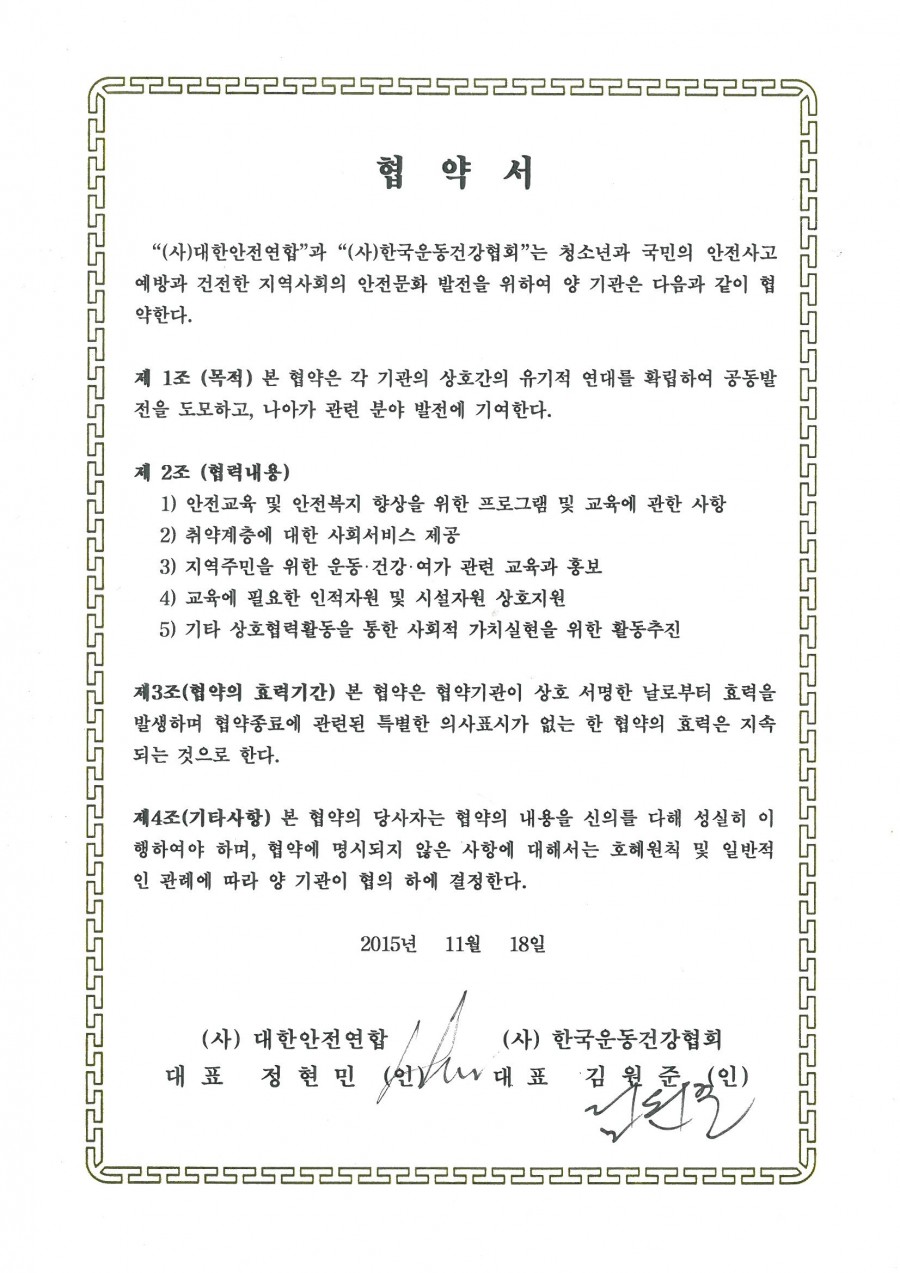 협 약 서
“(사)대한안전연합”과 “(사)한국운동건강협회”는 청소년과 국민의 안전사고
예방과 건전한 지역사회의 안전문화 발전을 위하여 양 기관은 다음과 같이 협
약한다.
제 1조 (목적) 본 협약은 각 기관의 상호간의 유기적 연대를 확립하여 공동발
전을 도모하고, 나아가 관련 분야 발전에 기여한다.
제 2조 (협력내용)
1) 안전교육 및 안전복지 향상을 위한 프로그램 및 교육에 관한 사항
2) 취약계층에 대한 사회서비스 제공
3) 지역주민을 위한 운동·건강·여가 관련 교육과 홍보
4) 교육에 필요한 인적자원 및 시설자원 상호지원
5) 기타 상호협력활동을 통한 사회적 가치실현을 위한 활동추진
제3조(협약의 효력기간) 본 협약은 협약기관이 상호 서명한 날로부터 효력을
발생하며 협약종료에 관련된 특별한 의사표시가 없는 한 협약의 효력은 지속
되는 것으로 한다.
제4조(기타사항) 본 협약의 당사자는 협약의 내용을 신의를 다해 성실히 이
행하여야 하며, 협약에 명시되지 않은 사항에 대해서는 호혜원칙 및 일반적
인 관례에 따라 양 기관이 협의 하에 결정한다.
2015년 11월 18일
(사) 대한안전연합 (사) 한국운동건강협회
대 표 정 현 민 (인) 대 표 김 원 준 (인)